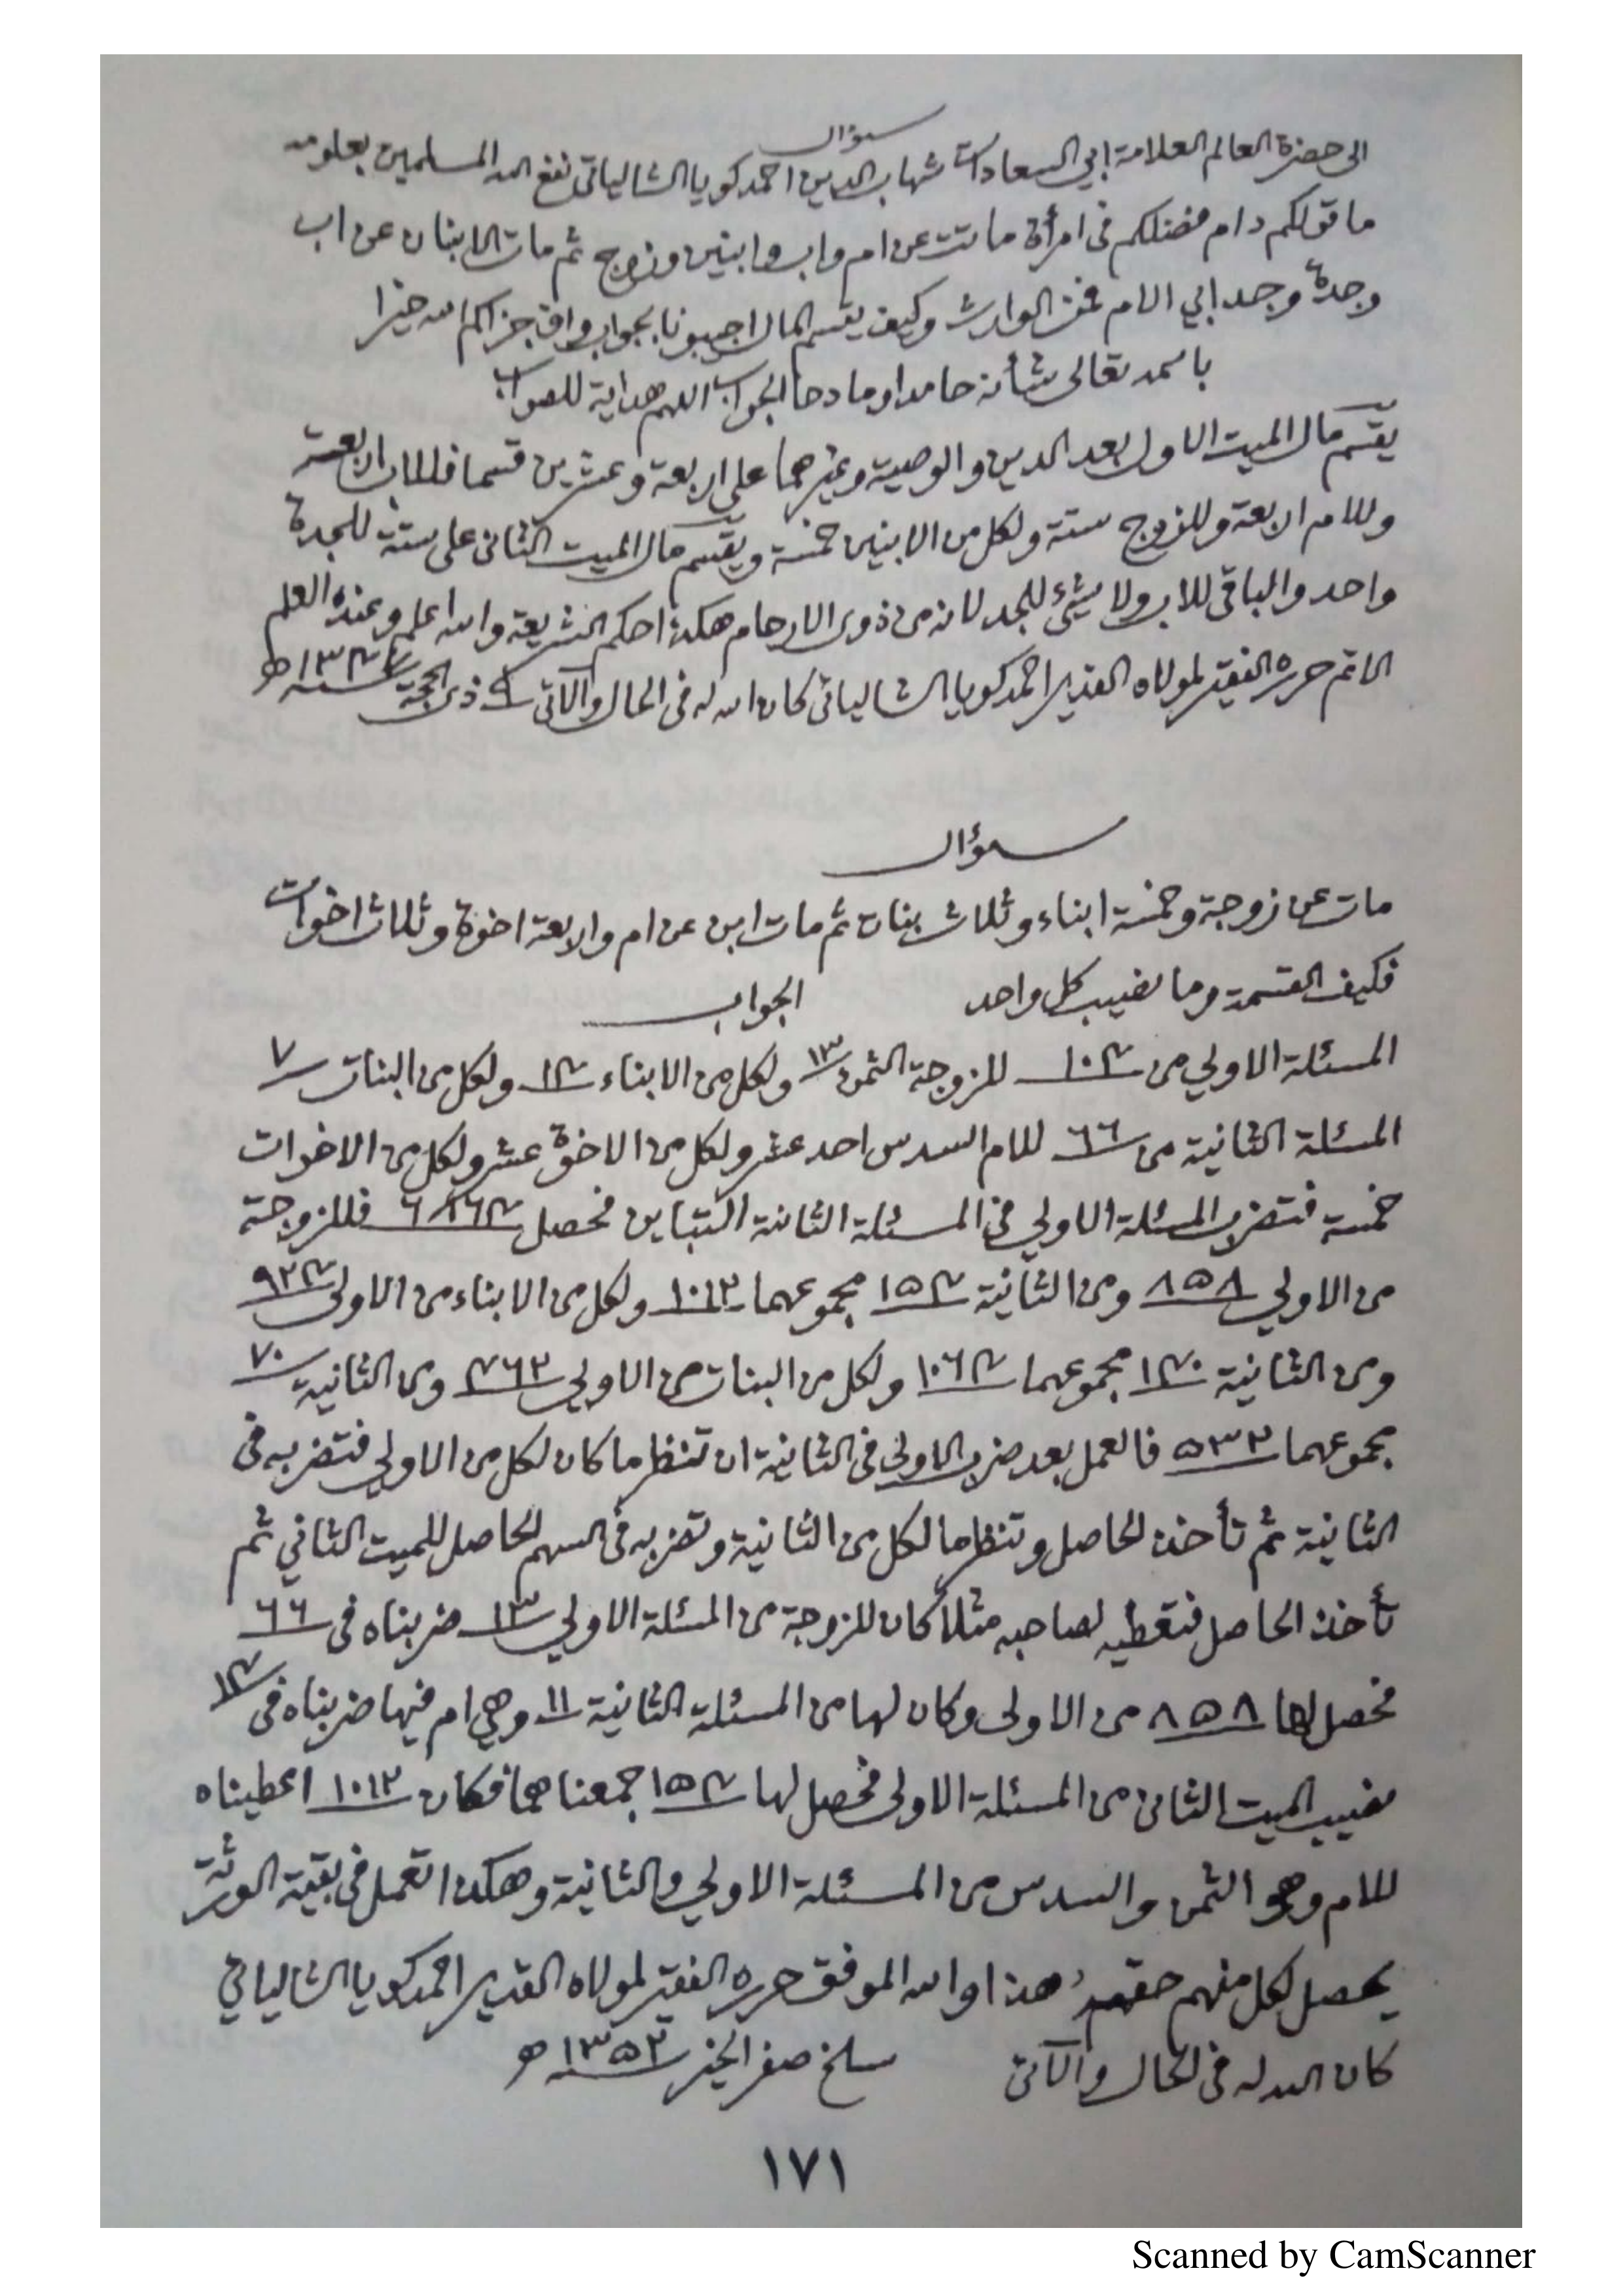 سؤال
الى حضرة العالم العلامة ابي السعادات شهاب الدين احمد كويا الشالياتى نفع الله المسلمين بعلومه
ما قولكم دام فضلكم فى امرأة ماتت عن ام واب وابنين وزوج ثم مات الابنان عن اب
وجدة وجد ابي الام فمن الوارث وكيف يقسم المال اجيبونا بجواب واف جزاكم الله خيرا
باسمه تعالى شأنه حامدا ومادحا الجواب اللهم هداية للصواب
يقسم مال الميت الاول بعد الدين والوصية وغيرهما على اربعة وعشرين قسما فللاب اربعة
وللام اربعة وللزوج ستة ولكل من الابنين خمسة ويقسم مال الميت الثانى على ستة للجدة
واحد والباقى للاب ولا شئ للجد لانه من ذوى الارحام هكذا حكم الشريعة والله اعلم وعنده العلم
الاتم حرره الفقير لمولاه القدير احمد كويا الشالياتى كان الله له فى الحال والآتى ٩ ذى الحجة سنة ه
سؤال
مات عن زوجة وخمسة ابناء وثلاث بنات ثم مات ابن عن ام واربعة اخوة وثلاث اخوات
فكيف القسمة وما نصيب كل واحد الجواب
المسئلة الاولي من ١٠٤ للزوجة الثمن ١٣ ولكل من الابناء ١٤ ولكل من البنات ٧
المسئلة الثانية من ٦٦ للام السدس احد عشر ولكل من الاخوة عشر ولكل من الاخوات
خمسة فتضرب المسئلة الاولي فى المسئلة الثانية للتباين فحصل ٦٨٦٤ فللزوجة
من الاولي ٨٥٨ ومن الثانية ١٥٤ مجموعهما ١٠١٢ ولكل من الابناء من الاولى ٩٢٤
ومن الثانية ١٤٠ مجموعهما ١٠٦٤ ولكل من البنات من الاولي ٤٦٢ ومن الثانية ٧٠
مجموعهما ٥٣٢ فالعمل بعد ضرب الاولى فى الثانية ان تنظر ما كان لكل من الاولي فتضربه فى
الثانية ثم تأخذ الحاصل وتنظر ما لكل من الثانية وتضربه فى السهم الحاصل للميت الثاني ثم
تأخذ الحاصل فتعطيه لصاحبه مثلا كان للزوجة من المسئلة الاولي ١٣ ضربناه فى ٦٦
فحصل لها ٨٥٨ من الاولى وكان لها من المسئلة الثانية ١١ وهي ام فيها ضربناه فى ١٤
نصيب الميت الثانى من المسئلة الاولى فحصل لها ١٥٤ جمعناهما فكان ١٠١٢ اعطيناه
للام وهو الثمن والسدس من المسئلة الاولي والثانية وهكذا تعمل فى بقية الورثة
يحصل لكل منهم حقهم هذا والله الموفق حرره الفقير لمولاه القدير احمد كويا الشالياتي
كان الله له فى الحال والآتى سلخ صفر الخير سنة ١٣٥٢ ه
١٧١
Scanned by CamScanner